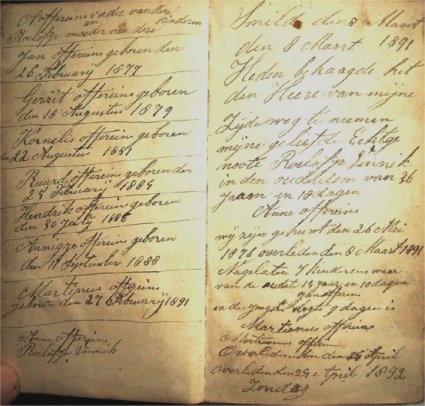 A offereins vader van den
en kinderen
Roelofje moeder van deze
Jan offereins geboren den
26 Februarij 1877
Gerriet offereins geboren
den 18 Augustus 1879
Kornelis offerein geboren
22 Augustus 1881
Ruurd offereins geboren den
Februarij
Hendrik offereins geboren
den 30 Julij
Annegje offereins geboren
den 11 September 1888
Martinus offereins
geboren den 27 Februarij 1891
Anne offereins
Roelofje Vinnek
Smilde den 8 Maart
1891
den 8 Maart
Heden behaagde het
den Heere van mijne
Zijde weg te neemen
mijne geliefde Echtge
noote Roelofje Vinnek
in den ouderdom van 36
Jaarn en 18 dagen
Anne offereins
wij zijn gehuwt den 26 Mei
1876 overleden den 8 Maart 1891
Nagelaten 7 kinderen waar
van de oudste 14 jaar en 10 dagen
Jan offereins
en de jongst 9 dagen is
Martinus offereins
Martinus offerein
Overleden den April
overleden den 24 April 1892
Zondag